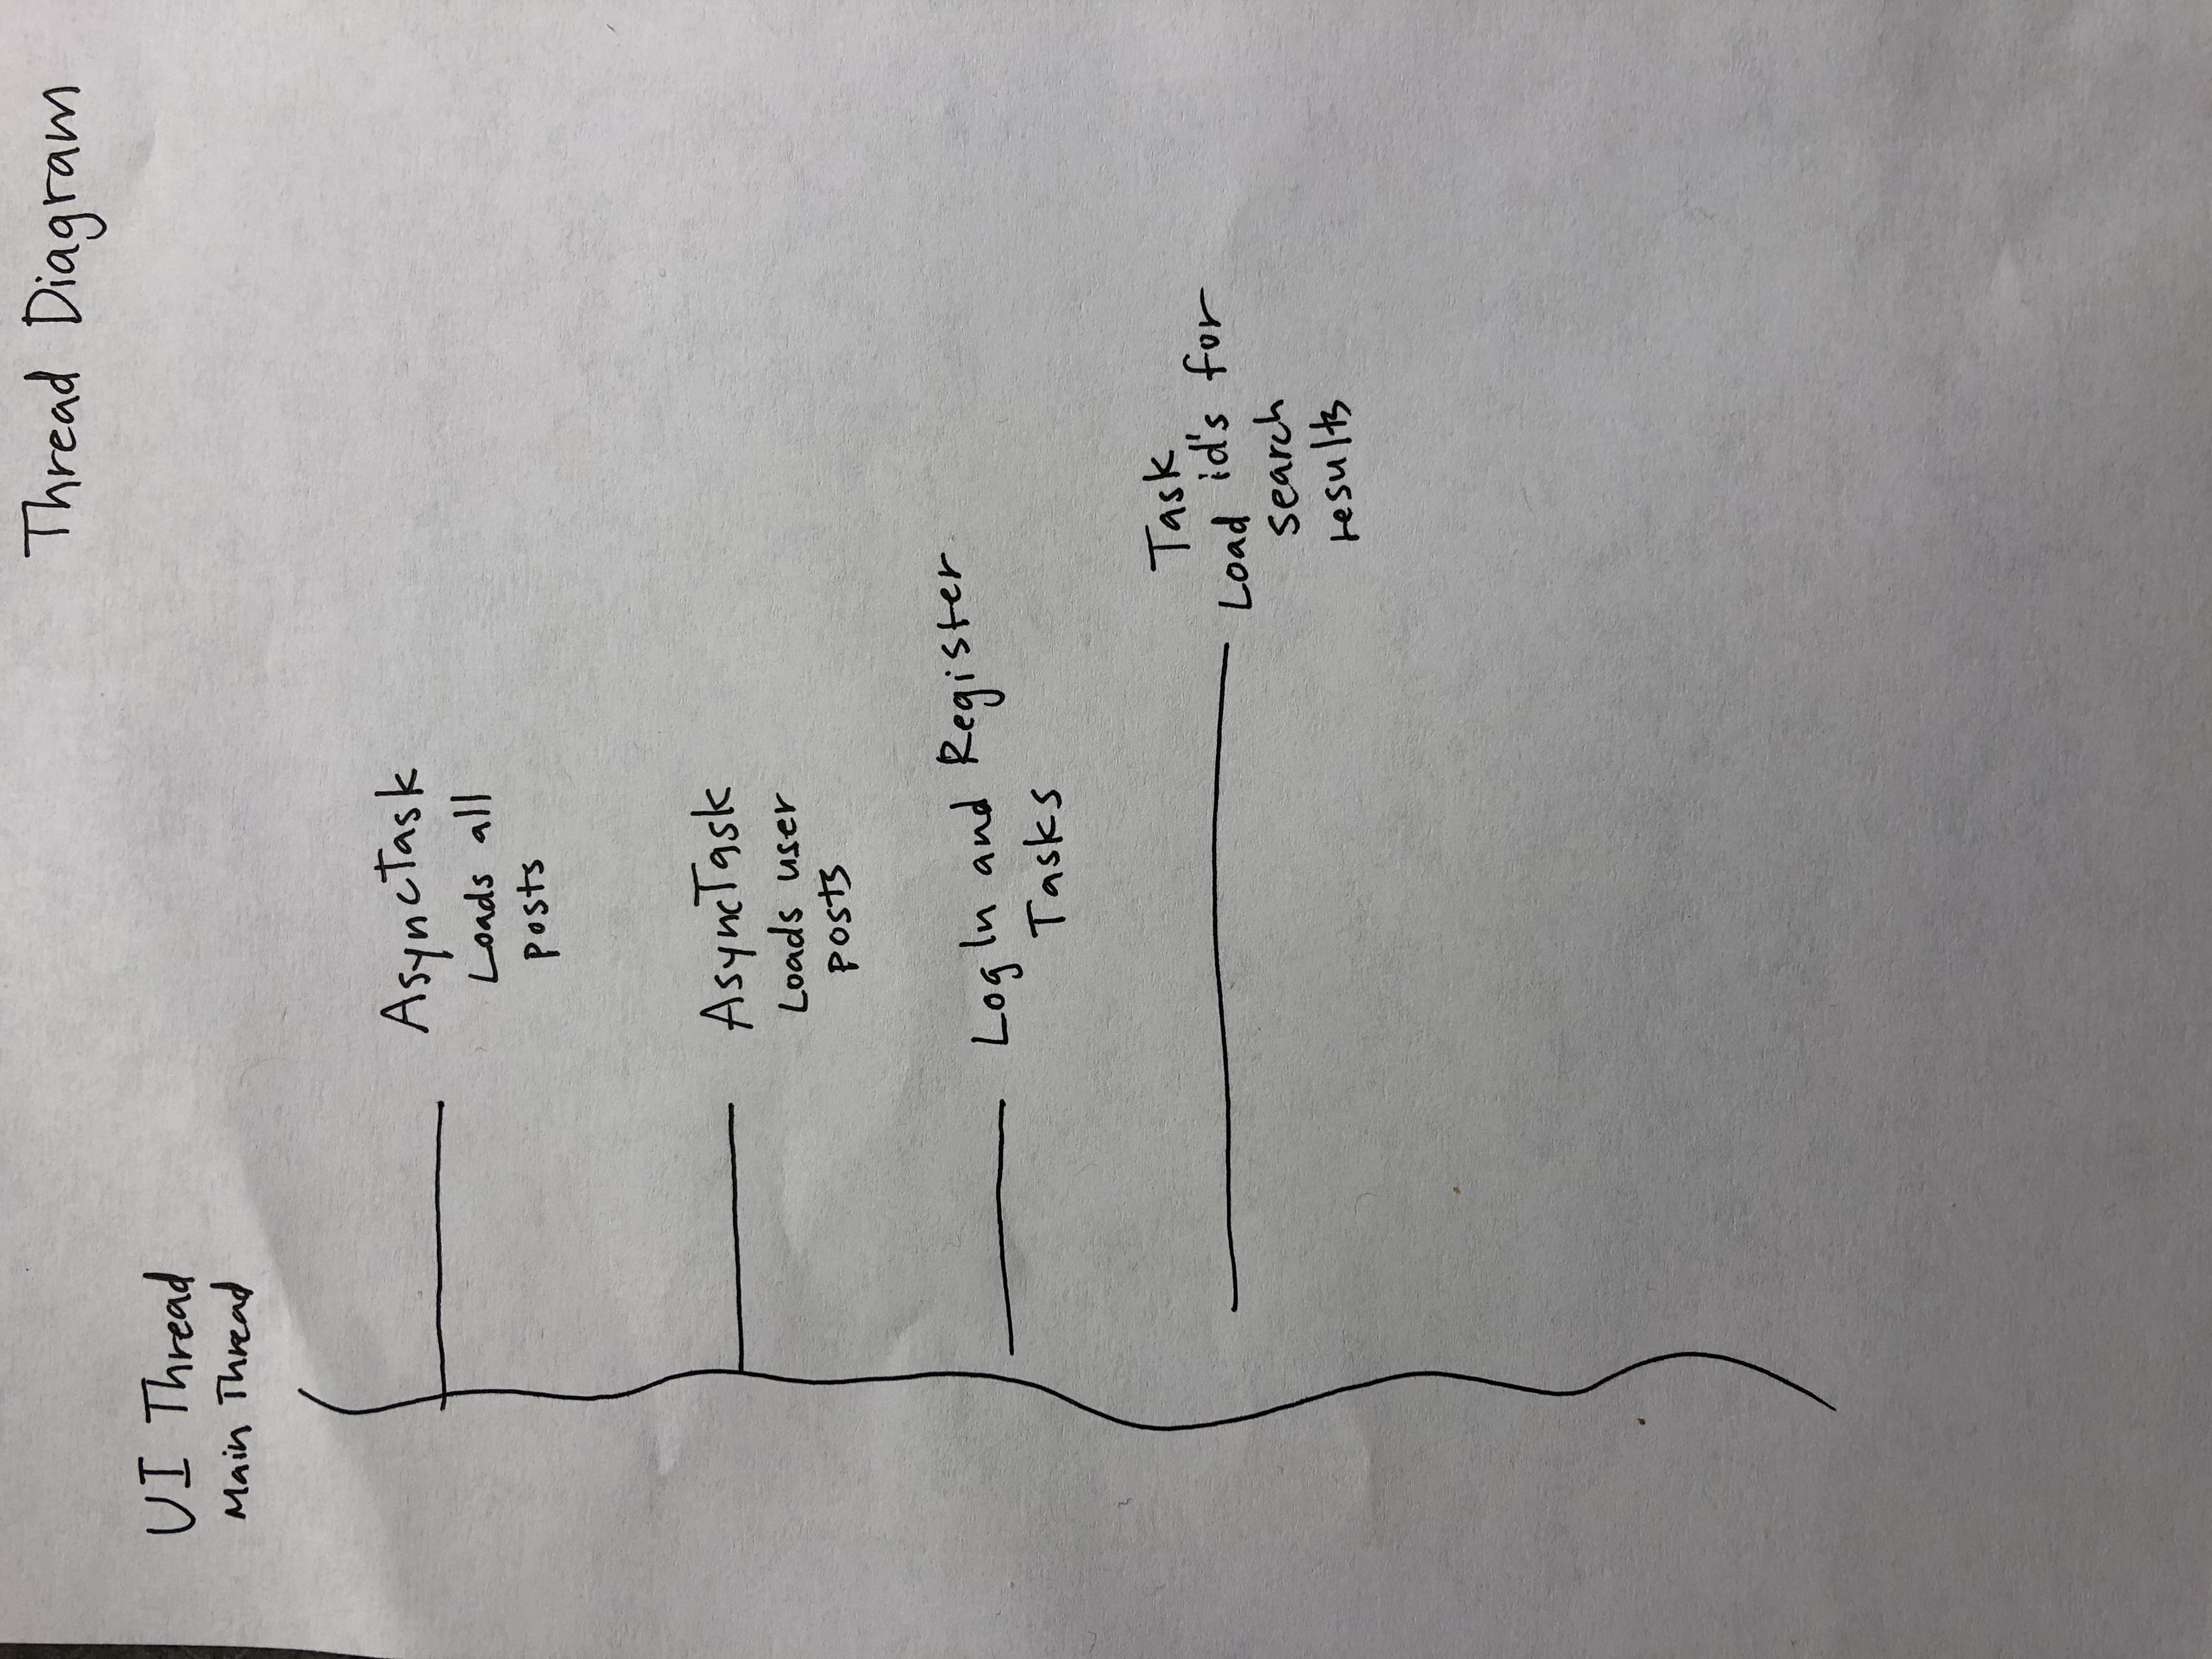 Thread Diagram
UI Thread
Main Thread
AsyncTask
Loads all
posts
AsyncTask
Loads user
posts
LogIn and Register
Tasks
Task
Load id's for
search
results